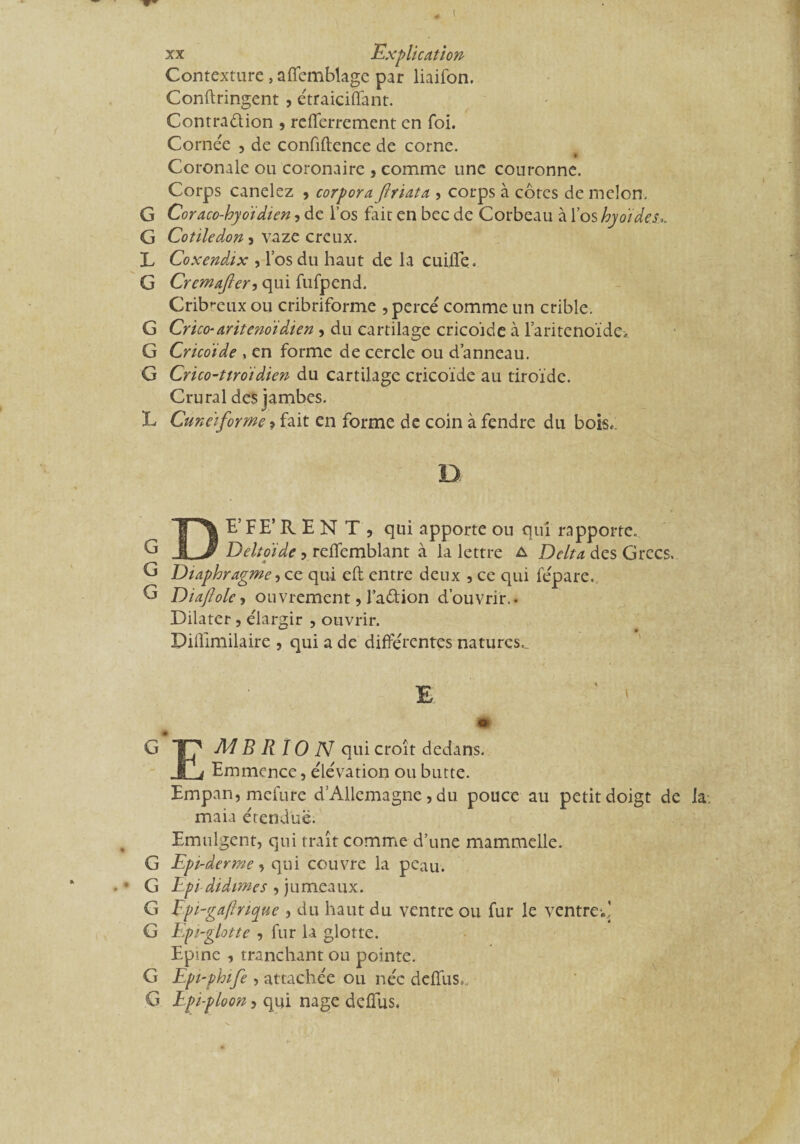 xx Explication
Contexture, aſſemblage par liaiſon.
Conſtringent, étraiciſſant.
Contraction, reſſerrement en ſoi.
Cornée, de conſiſtence de corne.
Coronale ou coronaire, comme une couronne.
Corps canelez, corpora ſtriata, corps à côtes de melon.
G Coraco-hyoïdien, de l'os fait en bec de Corbeau à l'os hyoïdes.
G Cotiledon, vaze creux.
L Coxendix, l'os du haut de la cuiſſe.
G Cremaſter, qui ſuſpend.
Cribreux ou cribriforme, percé comme un crible.
G Crico-aritenoïdien, du cartilage cricoïde à l'aritenoïde.
G Cricoïde, en forme de cercle ou d'anneau.
G Crico-tiroïdien du cartilage cricoïde au tiroïde.
Crural des jambes.
L Cuneïforme, fait en forme de coin à fendre du bois.
D
DE'FE'RENT, qui apporte ou qui rapporte.
G Deltoïde, reſſemblant à la lettre Δ Delta des Grecs.
G Diaphragme, ce qui eſt entre deux, ce qui ſépare.
G Diaſtole, ouvrement, l'action d'ouvrir.
Dilater, élargir, ouvrir.
Diſſimilaire, qui a de différentes natures.
E
G EMBRION qui croît dedans.
Emmence, élévation ou butte.
Empan, meſure d'Allemagne, du pouce au petit doigt de la
maia étenduë.
Emulgent, qui traît comme d'une mammelle.
G Epi-derme, qui couvre la peau.
G Epi didimes, jumeaux.
G Epi-gaſtrique, du haut du ventre ou ſur le ventre.
G Epi-glotte, ſur la glotte.
Epine, tranchant ou pointe.
G Epi-phiſe, attachée ou née deſſus.
G Epi-ploon, qui nage deſſus.